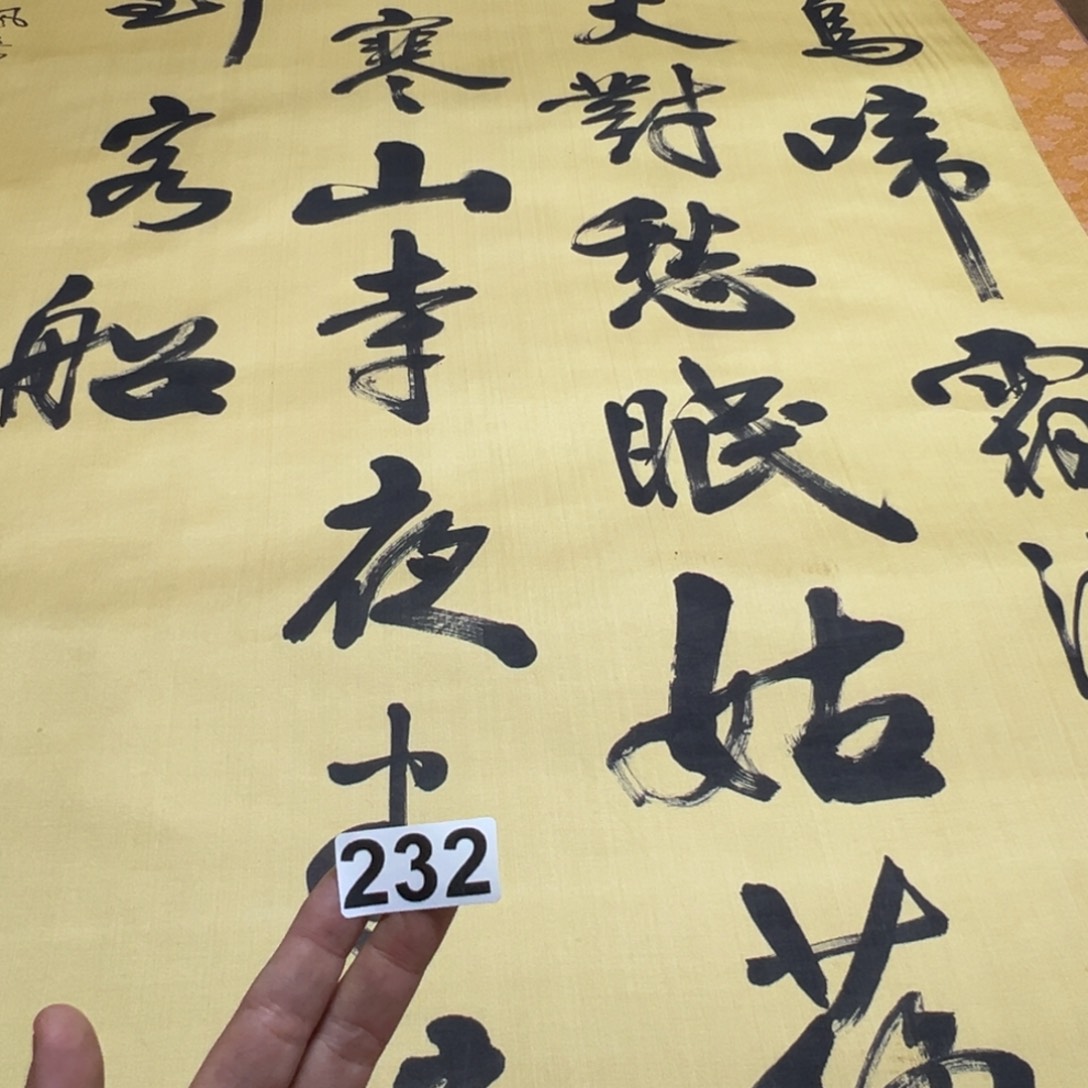 烏啼霜
火對愁眠姑
寒山寺夜
到客船
232